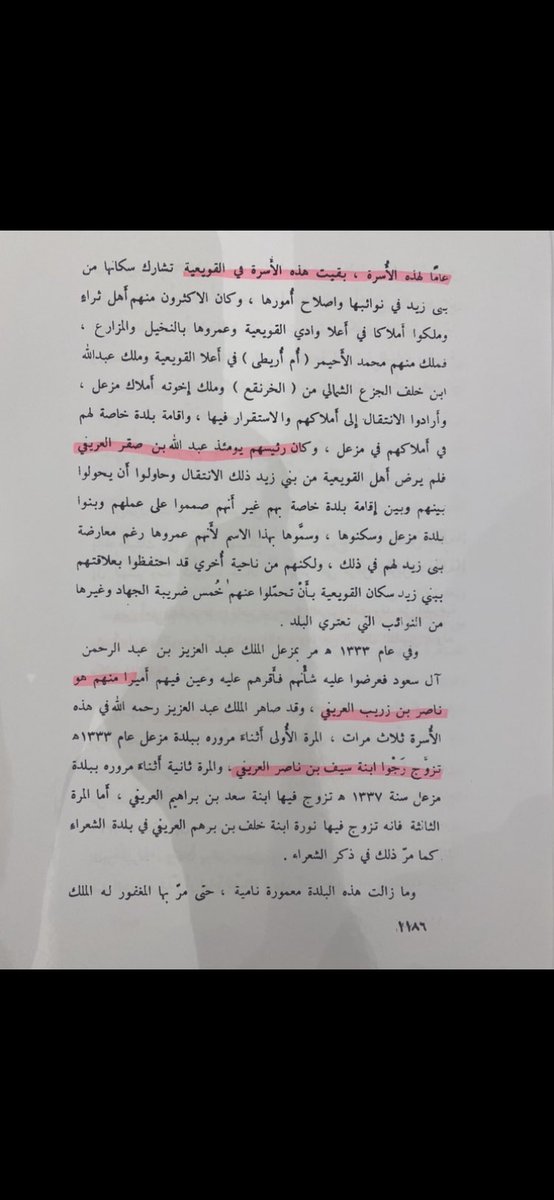 عامًا لهذه الأُسرة ، بقيت هذه الأَسرة في القويعية تشارك سكانها من
بنى زيد في نوائبها واصلاح أُمورها ، وكان الاكثرون منهم أَهل ثراءٍ
وملكوا أَملاكا في أَعلا وادي القويعية وعمروها بالنخيل والمزارع ،
فملك منهم محمد الأَحيمر ( أُم أُريطى ) في أَعلا القويعية وملك عبدالله
ابن خلف الجزع الشمالي من ( الخرنقع ) وملك إخوته أَملاك مزعل ،
وأَرادوا الانتقال إلى أَملاكهم والاستقرار فيها ، واقامة بلدة خاصة لهم
في أَملاكهم في مزعل ، وكان رئيسهم يومئذ عبد الله بن صقر العريفي
فلم يرض أَهل القويعية من بني زيد ذلك الانتقال وحاولوا أَن يحولوا
بينهم وبين إقامة بلدة خاصة بهم غير أَنهم صمموا على عملهم وبنوا
بلدة مزعل وسكنوها ، وسمَّوها بهذا الاسم لأَنهم عمروها رغم معارضة
بنى زيد لهم في ذلك ، ولكنهم من ناحية أُخري قد احتفظوا بعلاقتهم
ببني زيد سكان القويعية بأَنْ تحمّلوا عنهم خُمس ضريبة الجهاد وغيرها
من النوائب التي تعتري البلد .
وفي عام ١٣٣٣ هـ مر بمزعل الملك عبد العزيز بن عبد الرحمن
آل سعود فعرضوا عليه شأْنهم فأَقرهم عليه وعين فيهم أَميرا منهم هو
ناصر بن زريب العريفي ، وقد صاهر الملك عبد العزيز رحمه الله في هذه
الأُسرة ثلاث مرات ، المرة الأُولى أَثناءَ مروره ببلدة مزعل عام ١٣٣٣هـ
تزوَّج رَجْوا ابنة سيف بن ناصر العريفي ، والمرة ثانية أَثناءَ مروره ببلدة
مزعل سنة ١٣٣٧ هـ تزوج فيها ابنة سعد بن براهيم العريفي ، أَما المرة
الثالثة فانه تزوج فيها نورة ابنة خلف بن برهم العريفي في بلدة الشعراء
كما مرّ ذلك في ذكر الشعراء .
وما زالت هذه البلدة معمورة نامية ، حتى مرّ بها المغفور له الملك